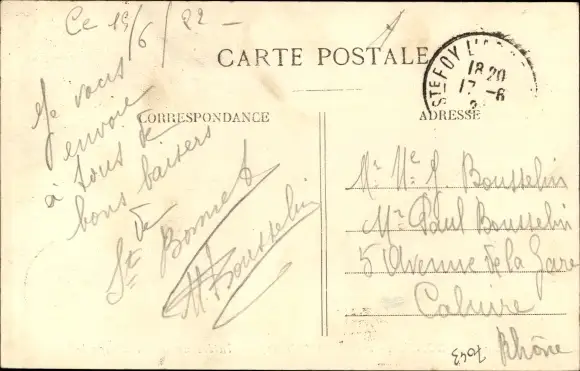 Ce 15/6/22-
CARTE POSTALE
STE FOY L'
18 20
17 -6
CORRESPONDANCE
ADRESSE
Je vous
envoie
à tous de
bons baisers
de
St Bonnet
M. Bousselin
Mr Me J. Bousselin
Mr Paul Bousselin
5 Avenue de la Gare
Caluire
Rhône
7043